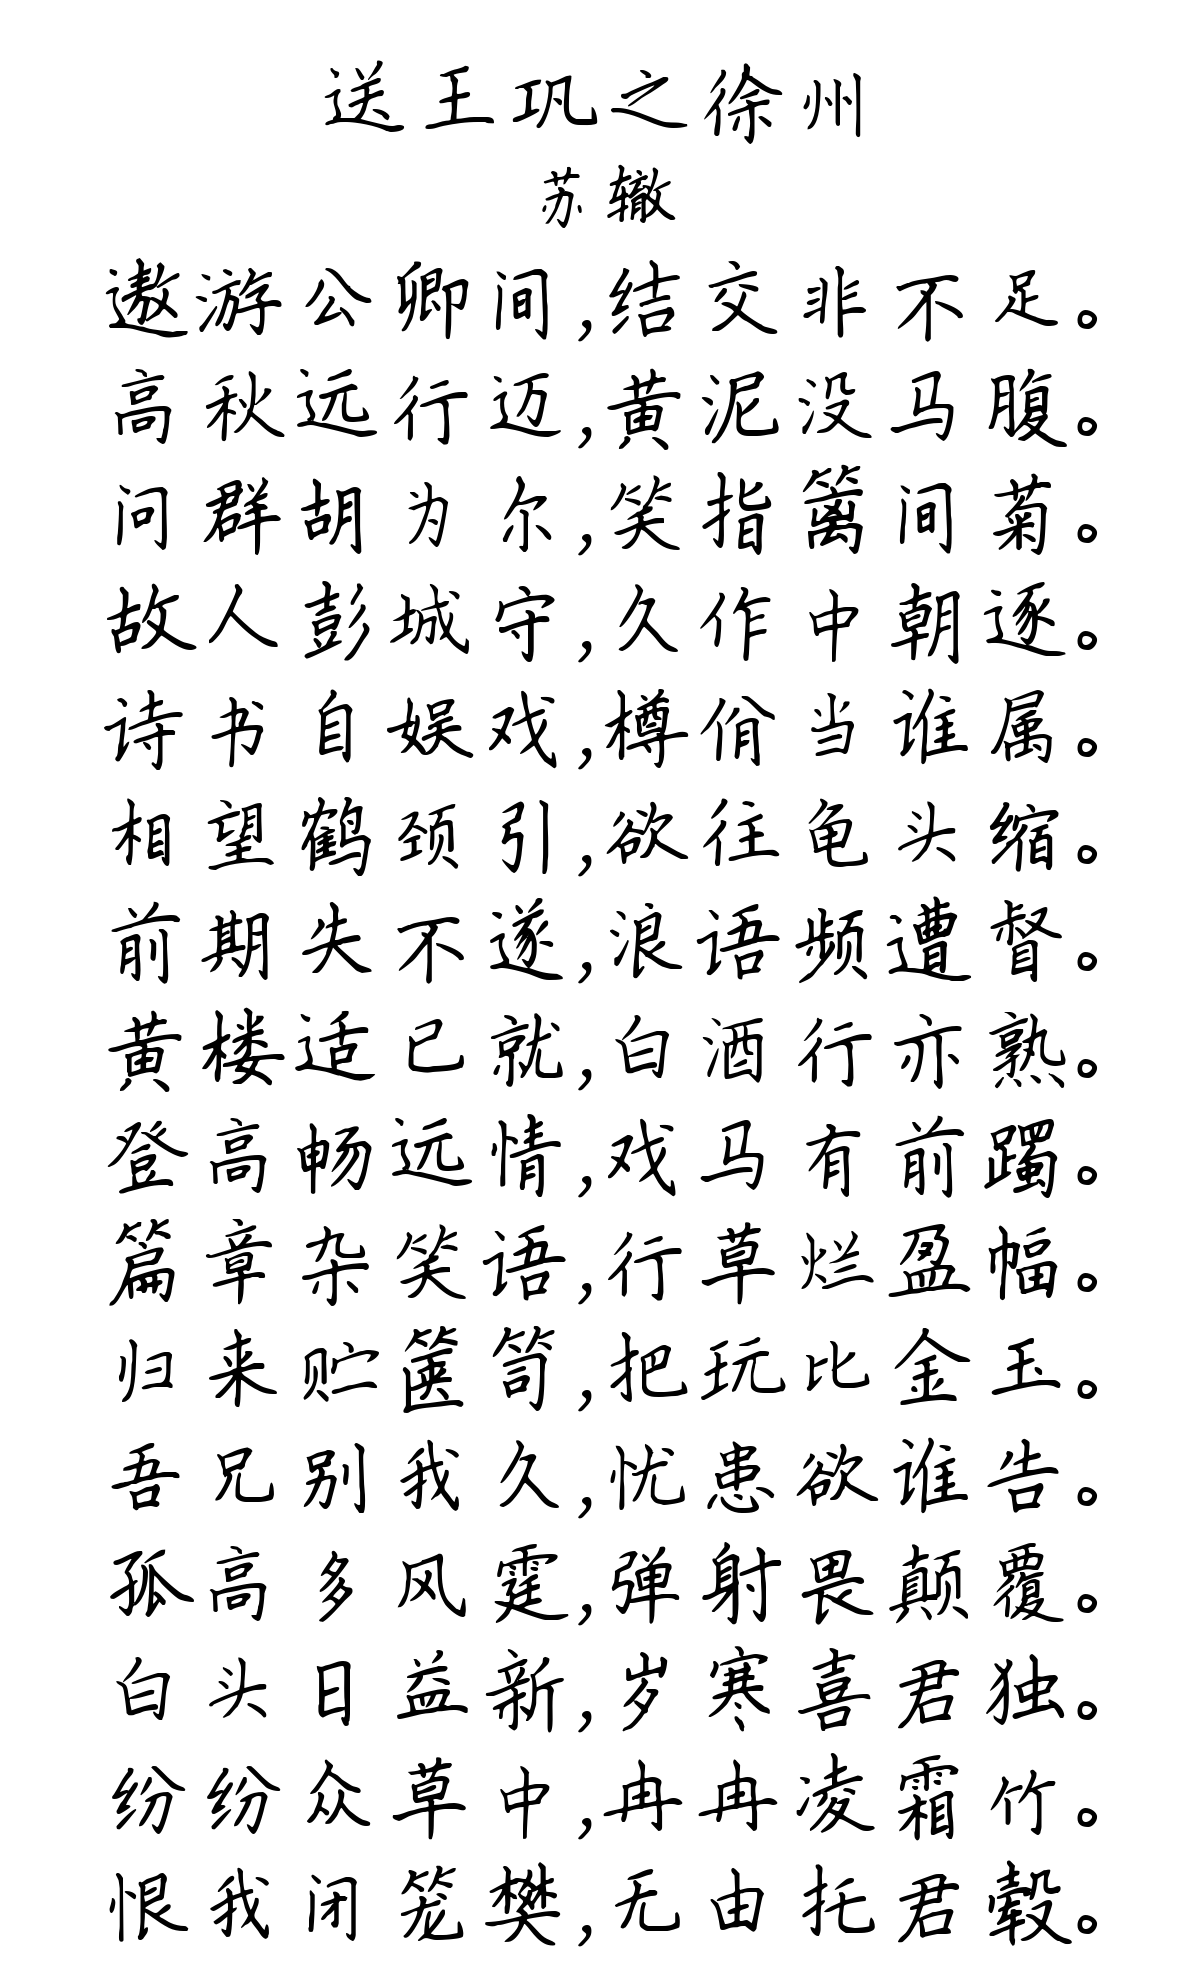 送王巩之徐州
苏辙
遨游公卿间,结交非不足。
高秋远行迈,黄泥没马腹。
问群胡为尔,笑指篱间菊。
故人彭城守,久作中朝逐。
诗书自娱戏,樽俏当谁属。
相望鹤颈引,欲往龟头缩。
前期失不遂,浪语频遭督。
黄楼适已就,白酒行亦熟。
登高畅远情,戏马有前躅。
篇章杂笑语,行草烂盈幅。
归来贮箧笥,把玩比金玉。
吾兄别我久,忧患欲谁告。
孤高多风霆,弹射畏颠覆。
白头日益新,岁寒喜君独。
纷纷众草中,冉冉凌霜竹。
恨我闭笼樊,无由托君毂。